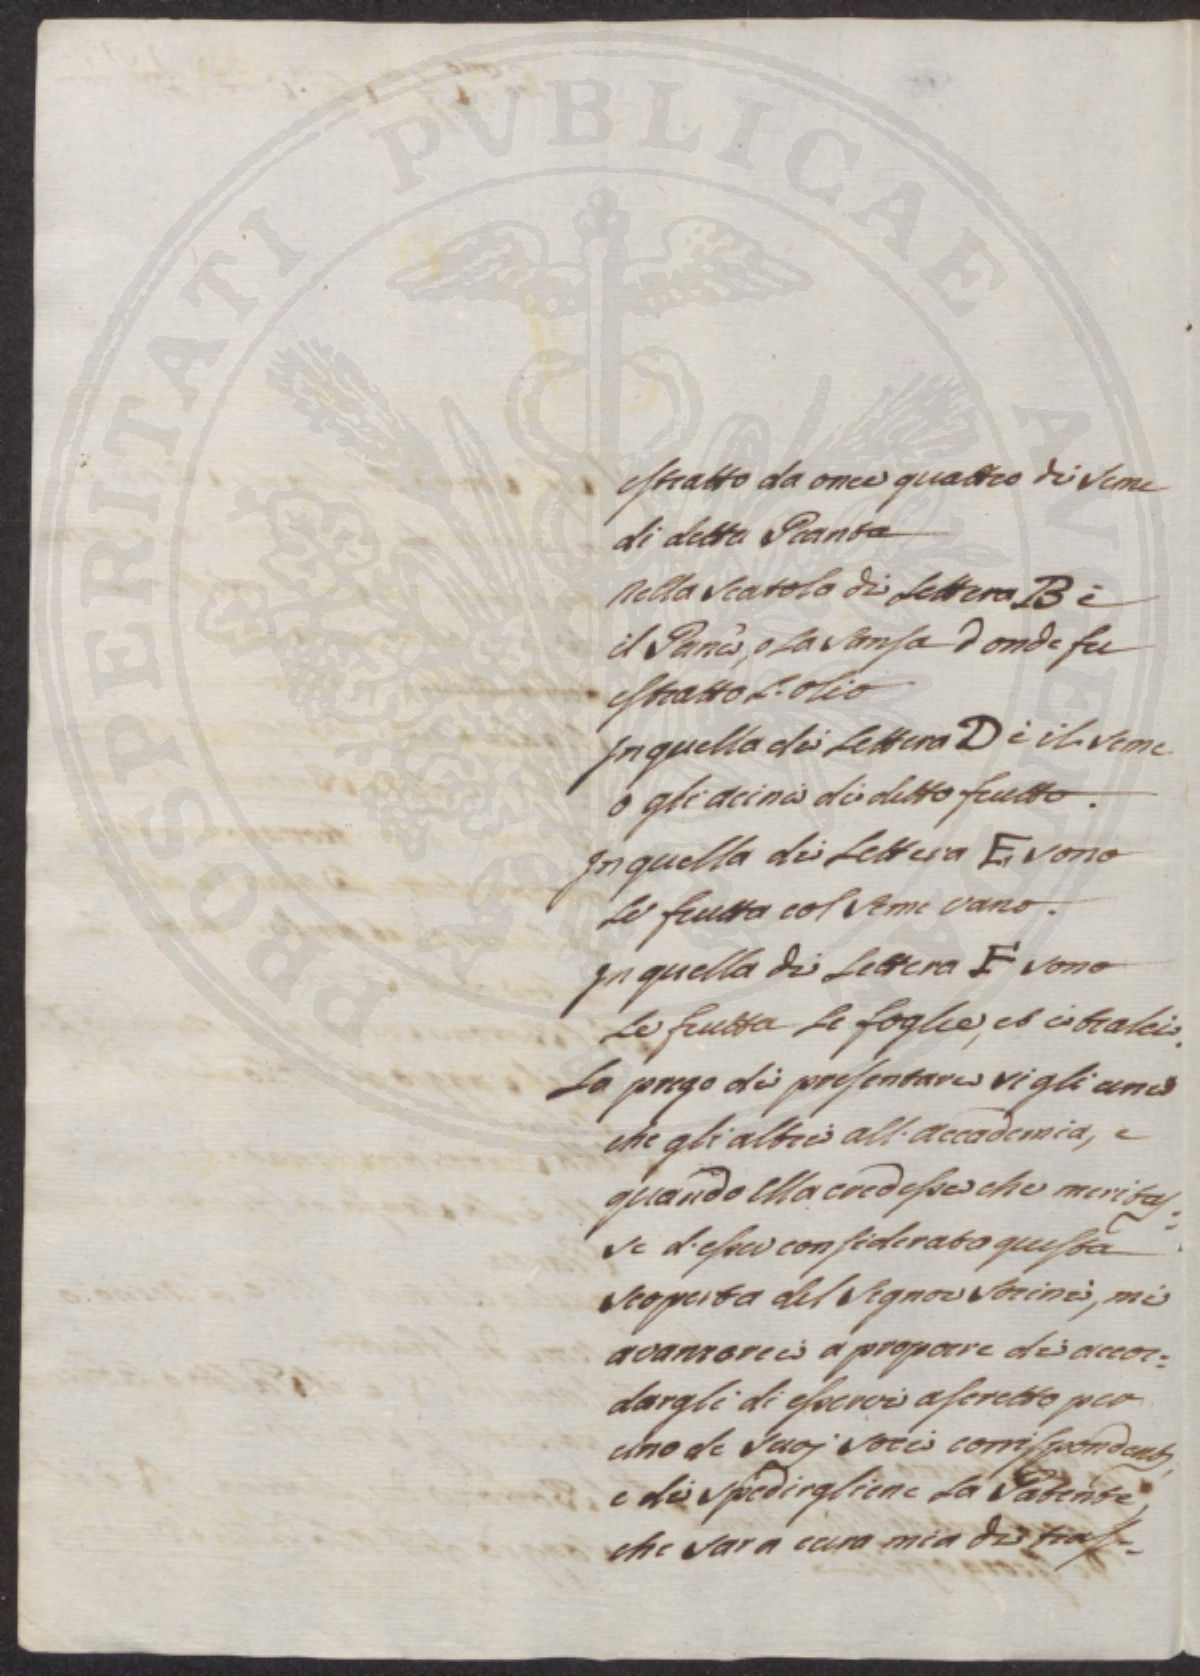 PROSPERITATI PVBLICAE AVGENDAE
estratto da once quattro di seme
di detta Pianta
Nella scatola di Lettera B è
il Pane, o La sansa donde fu
estratto L'olio
In quella di Lettera D è il seme
o gli acini di detto frutto.
In quella di Lettera E, sono
Le frutta col seme vano.
In quella di Lettera F sono
Le frutta Le foglie, et i tralci.
La prego di presentare sì gli uni
che gli altri all'accademia, e
quando Ella credesse che meritas=
se d'esser considerato questa
scoperta del Signor Socini, mi
avanzerei a proporre di accor=
dargli di esservi ascritto per
uno de suoj socii corrispondenti,
e di spedirgliene La Patente,
che sara cura mia di tras=